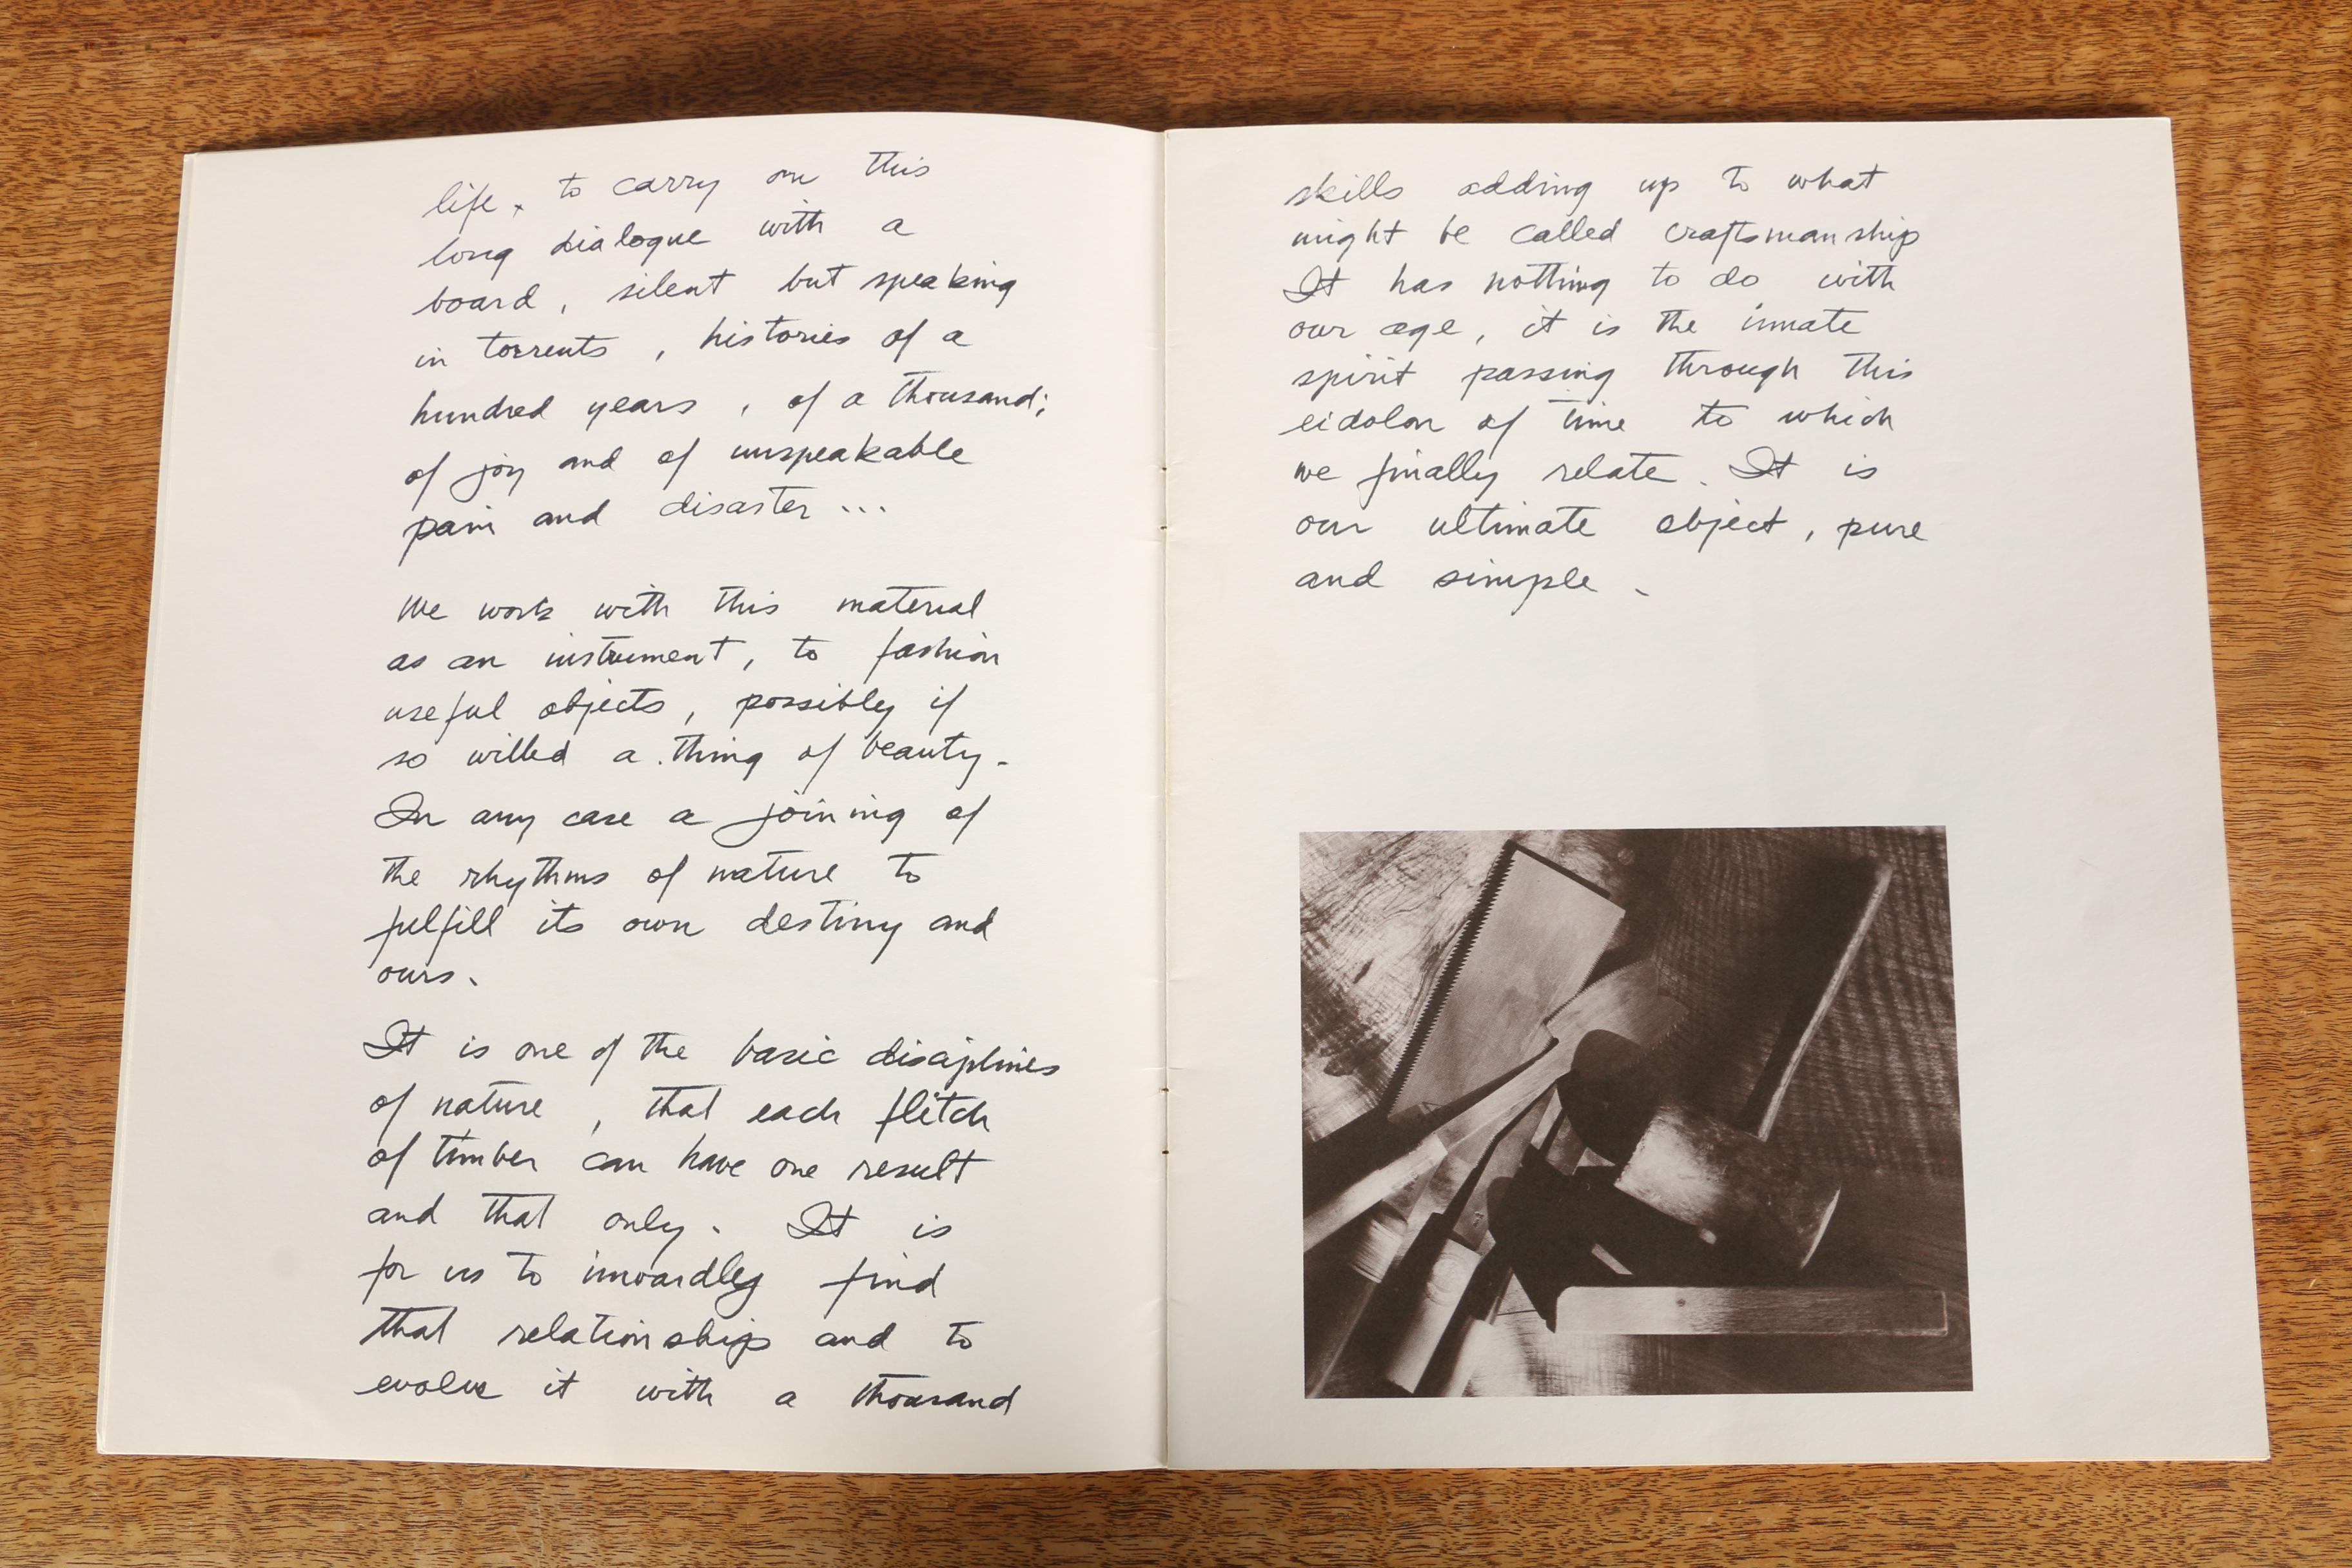 life, to carry on this
long dialogue with a
board, silent but speaking
in torrents, histories of a
hundred years, of a thousand;
of joy and of unspeakable
pain and disaster ...
We work with this material
as an instrument, to fashion
useful objects, possibly if
so willed a thing of beauty.
In any case a joining of
the rhythms of nature to
fulfill its own destiny and
ours.
It is one of the basic disciplines
of nature, that each flitch
of timber can have one result
and that only. It is
for us to inwardly find
that relationship and to
evolve it with a thousand
skills adding up to what
might be called craftsmanship
It has nothing to do with
our age, it is the innate
spirit passing through this
eidolon of time to which
we finally relate. It is
our ultimate object, pure
and simple.